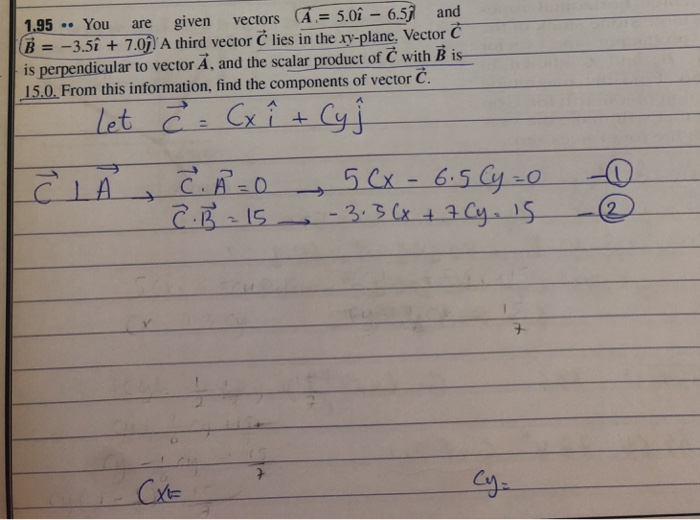 1.95 •• You are given vectors A⃗ = 5.0î − 6.5ĵ and
B⃗ = −3.5î + 7.0ĵ. A third vector C⃗ lies in the xy-plane. Vector C⃗
is perpendicular to vector A⃗, and the scalar product of C⃗ with B⃗ is
15.0. From this information, find the components of vector C⃗.
let C⃗ = Cx î + Cy ĵ
C⃗ ⊥ A⃗ → C⃗ . A⃗ = 0 → 5 Cx − 6.5 Cy = 0 — ①
C⃗ . B⃗ = 15 → − 3.5 Cx + 7 Cy = 15 — ②
Cx = Cy =